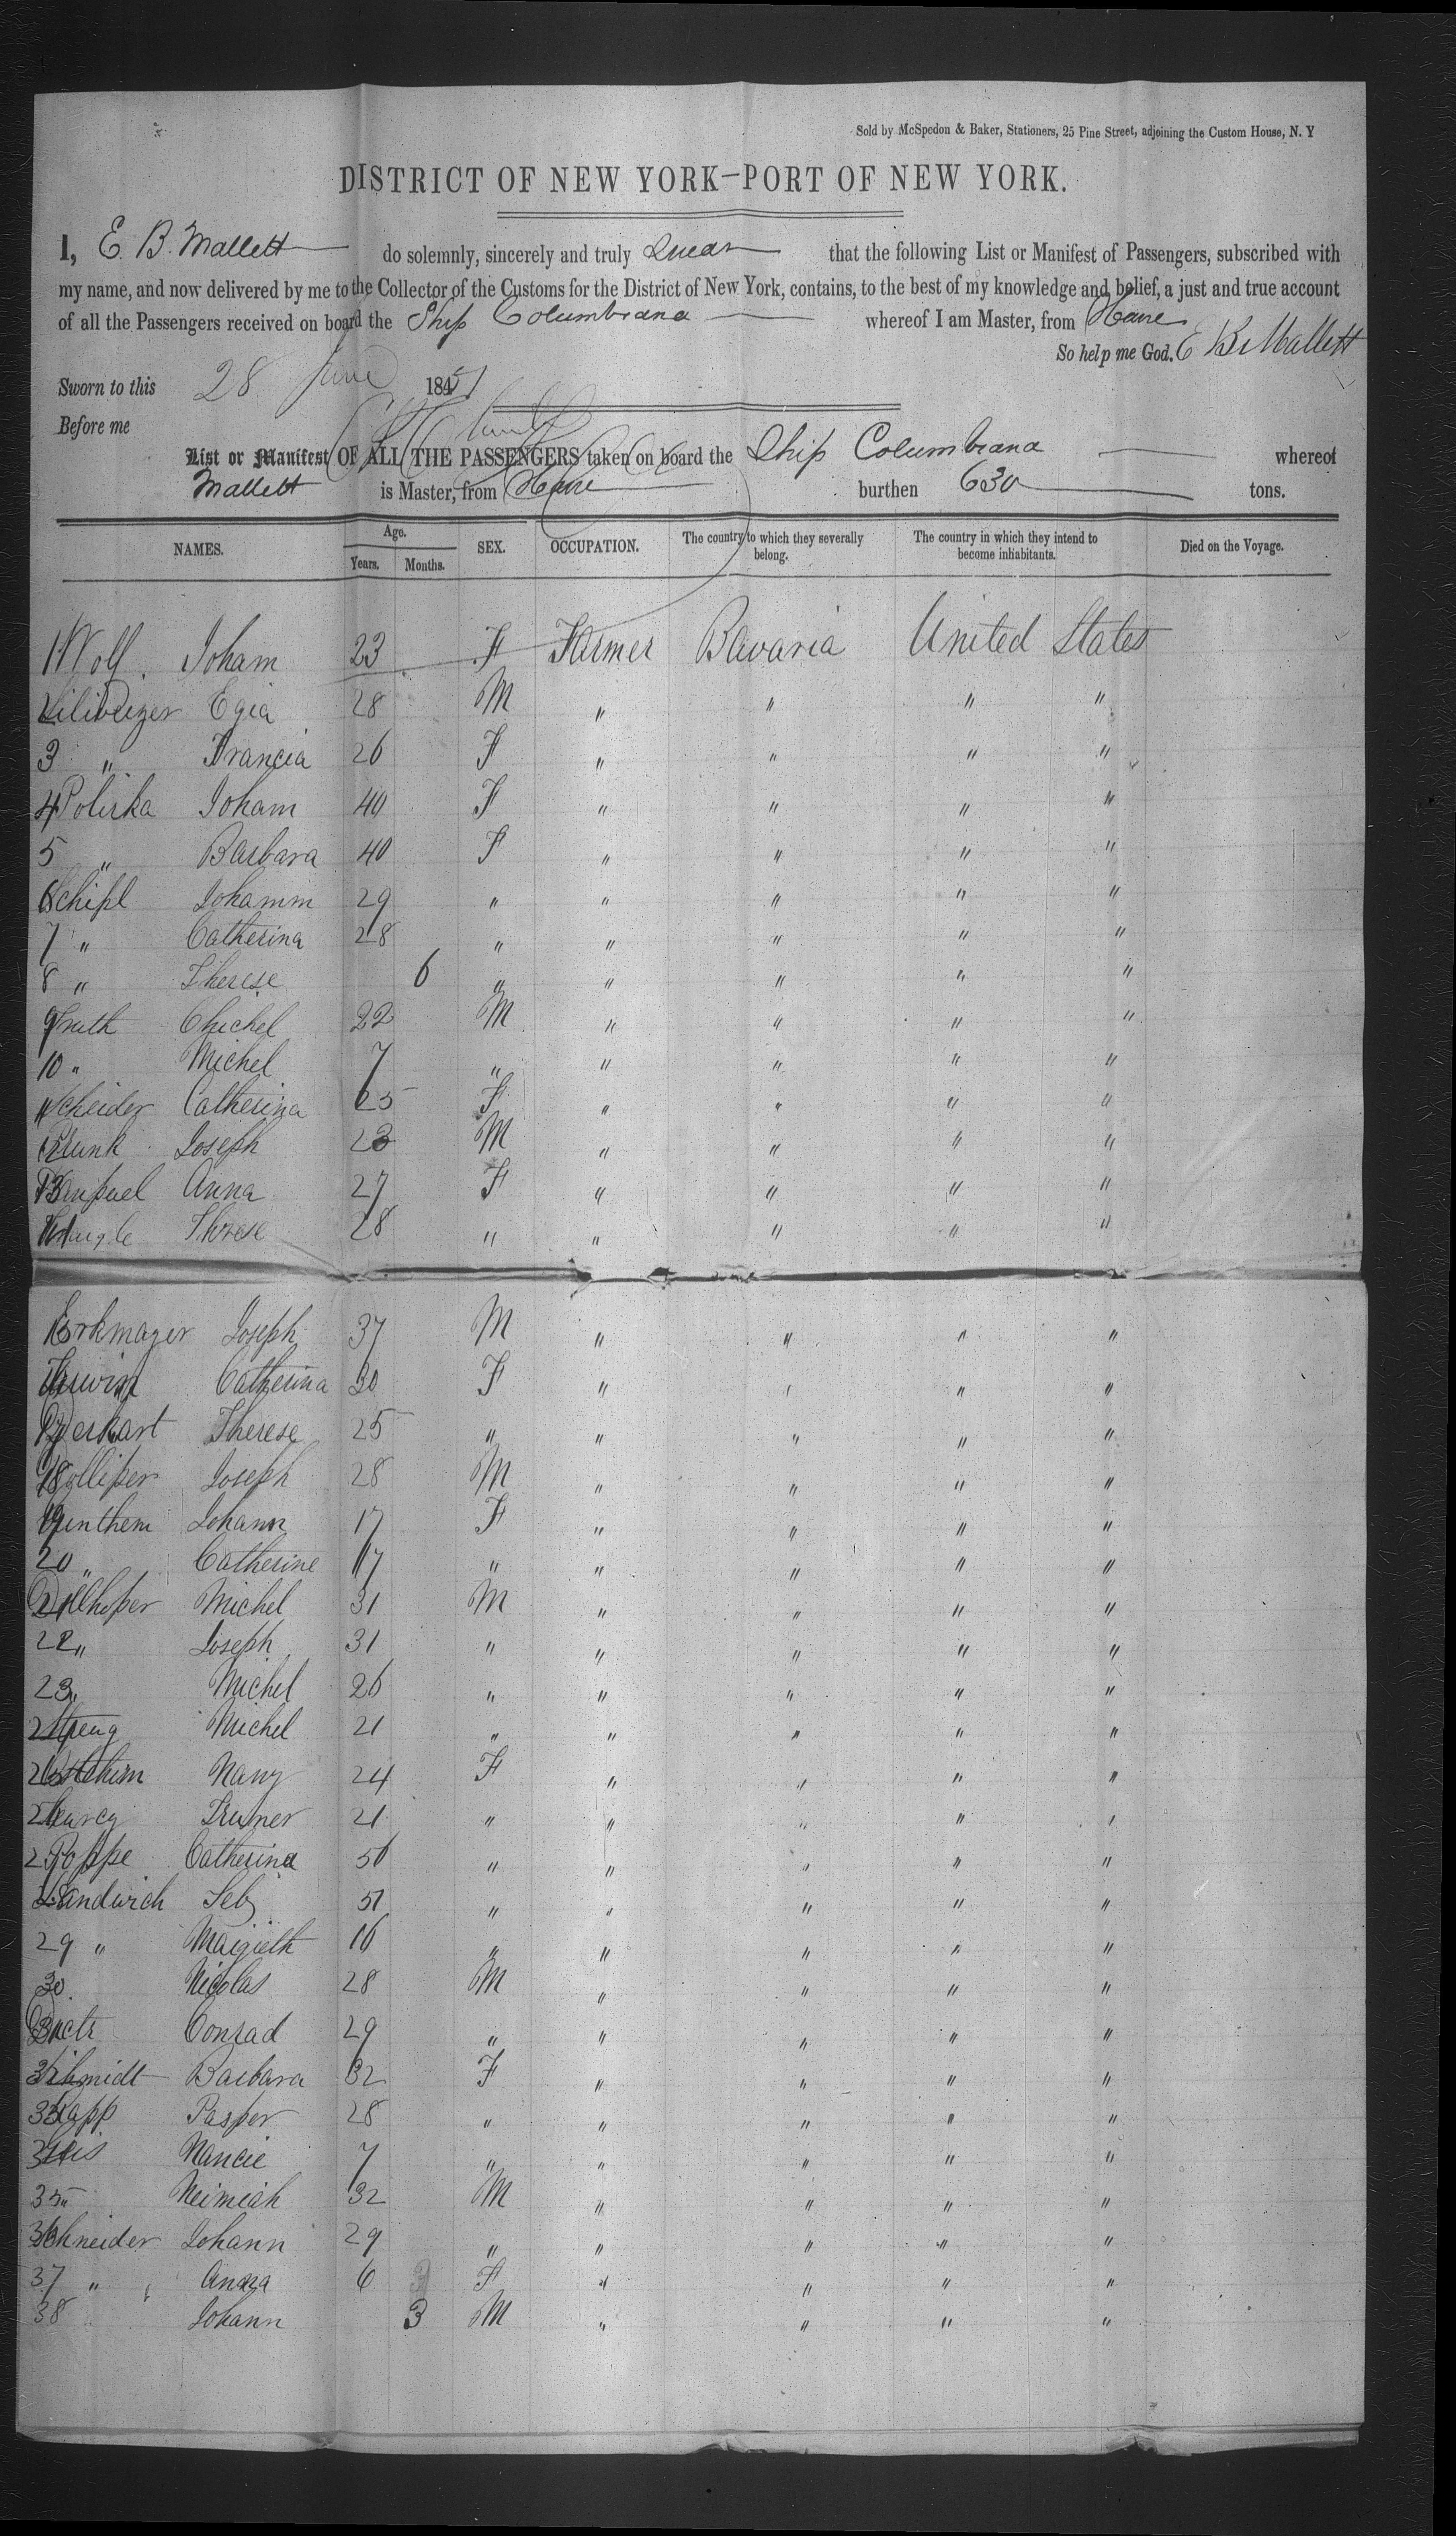 Sold by McSpedon & Baker, Stationers, 25 Pine Street, adjoining the Custom House, N. Y
DISTRICT OF NEW YORK—PORT OF NEW YORK.
I, E. B. Mallett do solemnly, sincerely and truly swear that the following List or Manifest of Passengers, subscribed with
my name, and now delivered by me to the Collector of the Customs for the District of New York, contains, to the best of my knowledge and belief, a just and true account
of all the Passengers received on board the Ship Columbiana whereof I am Master, from Havre
So help me God. E B Mallett
Sworn to this 28 June 1851
Before me
List or Manifest OF ALL THE PASSENGERS taken on board the Ship Columbiana whereof
Mallett is Master, from Havre burthen 630 tons.
NAMES. Age. Years. Months. SEX. OCCUPATION. The country to which they severally belong. The country in which they intend to become inhabitants. Died on the Voyage.
1 Wolf Joham 23 F Farmer Bavaria United States
2 Egia 28 M " " " "
3 " Francia 26 F " " " "
4 Polirka Joham 40 F " " " "
5 " Barbara 40 F " " " "
6 Schipl Johamm 29 " " " " "
7 " Catherina 28 " " " " "
8 " Therese 6 " " " " "
9 Chichel 22 M " " " "
10 " Michel 7 " " " " "
11 Scheider Catherina 25 F " " " "
12 Joseph 23 M " " " "
13 Anna 27 F " " " "
14 Therese 28 " " " " "
15 Joseph 37 M " " " "
16 Catherina 30 F " " " "
17 Therese 25 " " " " "
18 Joseph 28 M " " " "
19 Johann 17 F " " " "
20 " Catherine 17 " " " " "
21 Michel 31 M " " " "
22 " Joseph 31 " " " " "
23 " Michel 26 " " " " "
24 Michel 21 " " " " "
25 Nany 24 F " " " "
26 Truner 21 " " " " "
27 Poppe Catherina 56 " " " " "
28 Sandwich Seb 51 " " " " "
29 " Maigieth 16 " " " " "
30 Nicolas 28 M " " " "
31 Conrad 29 " " " " "
32 Schmidt Barbara 32 F " " " "
33 Kapp Pasper 28 " " " " "
34 Nancie 7 " " " " "
35 " Neimiah 32 M " " " "
36 Schneider Johann 29 " " " " "
37 " Anna 6 F " " " "
38 Johann 3 M " " " "